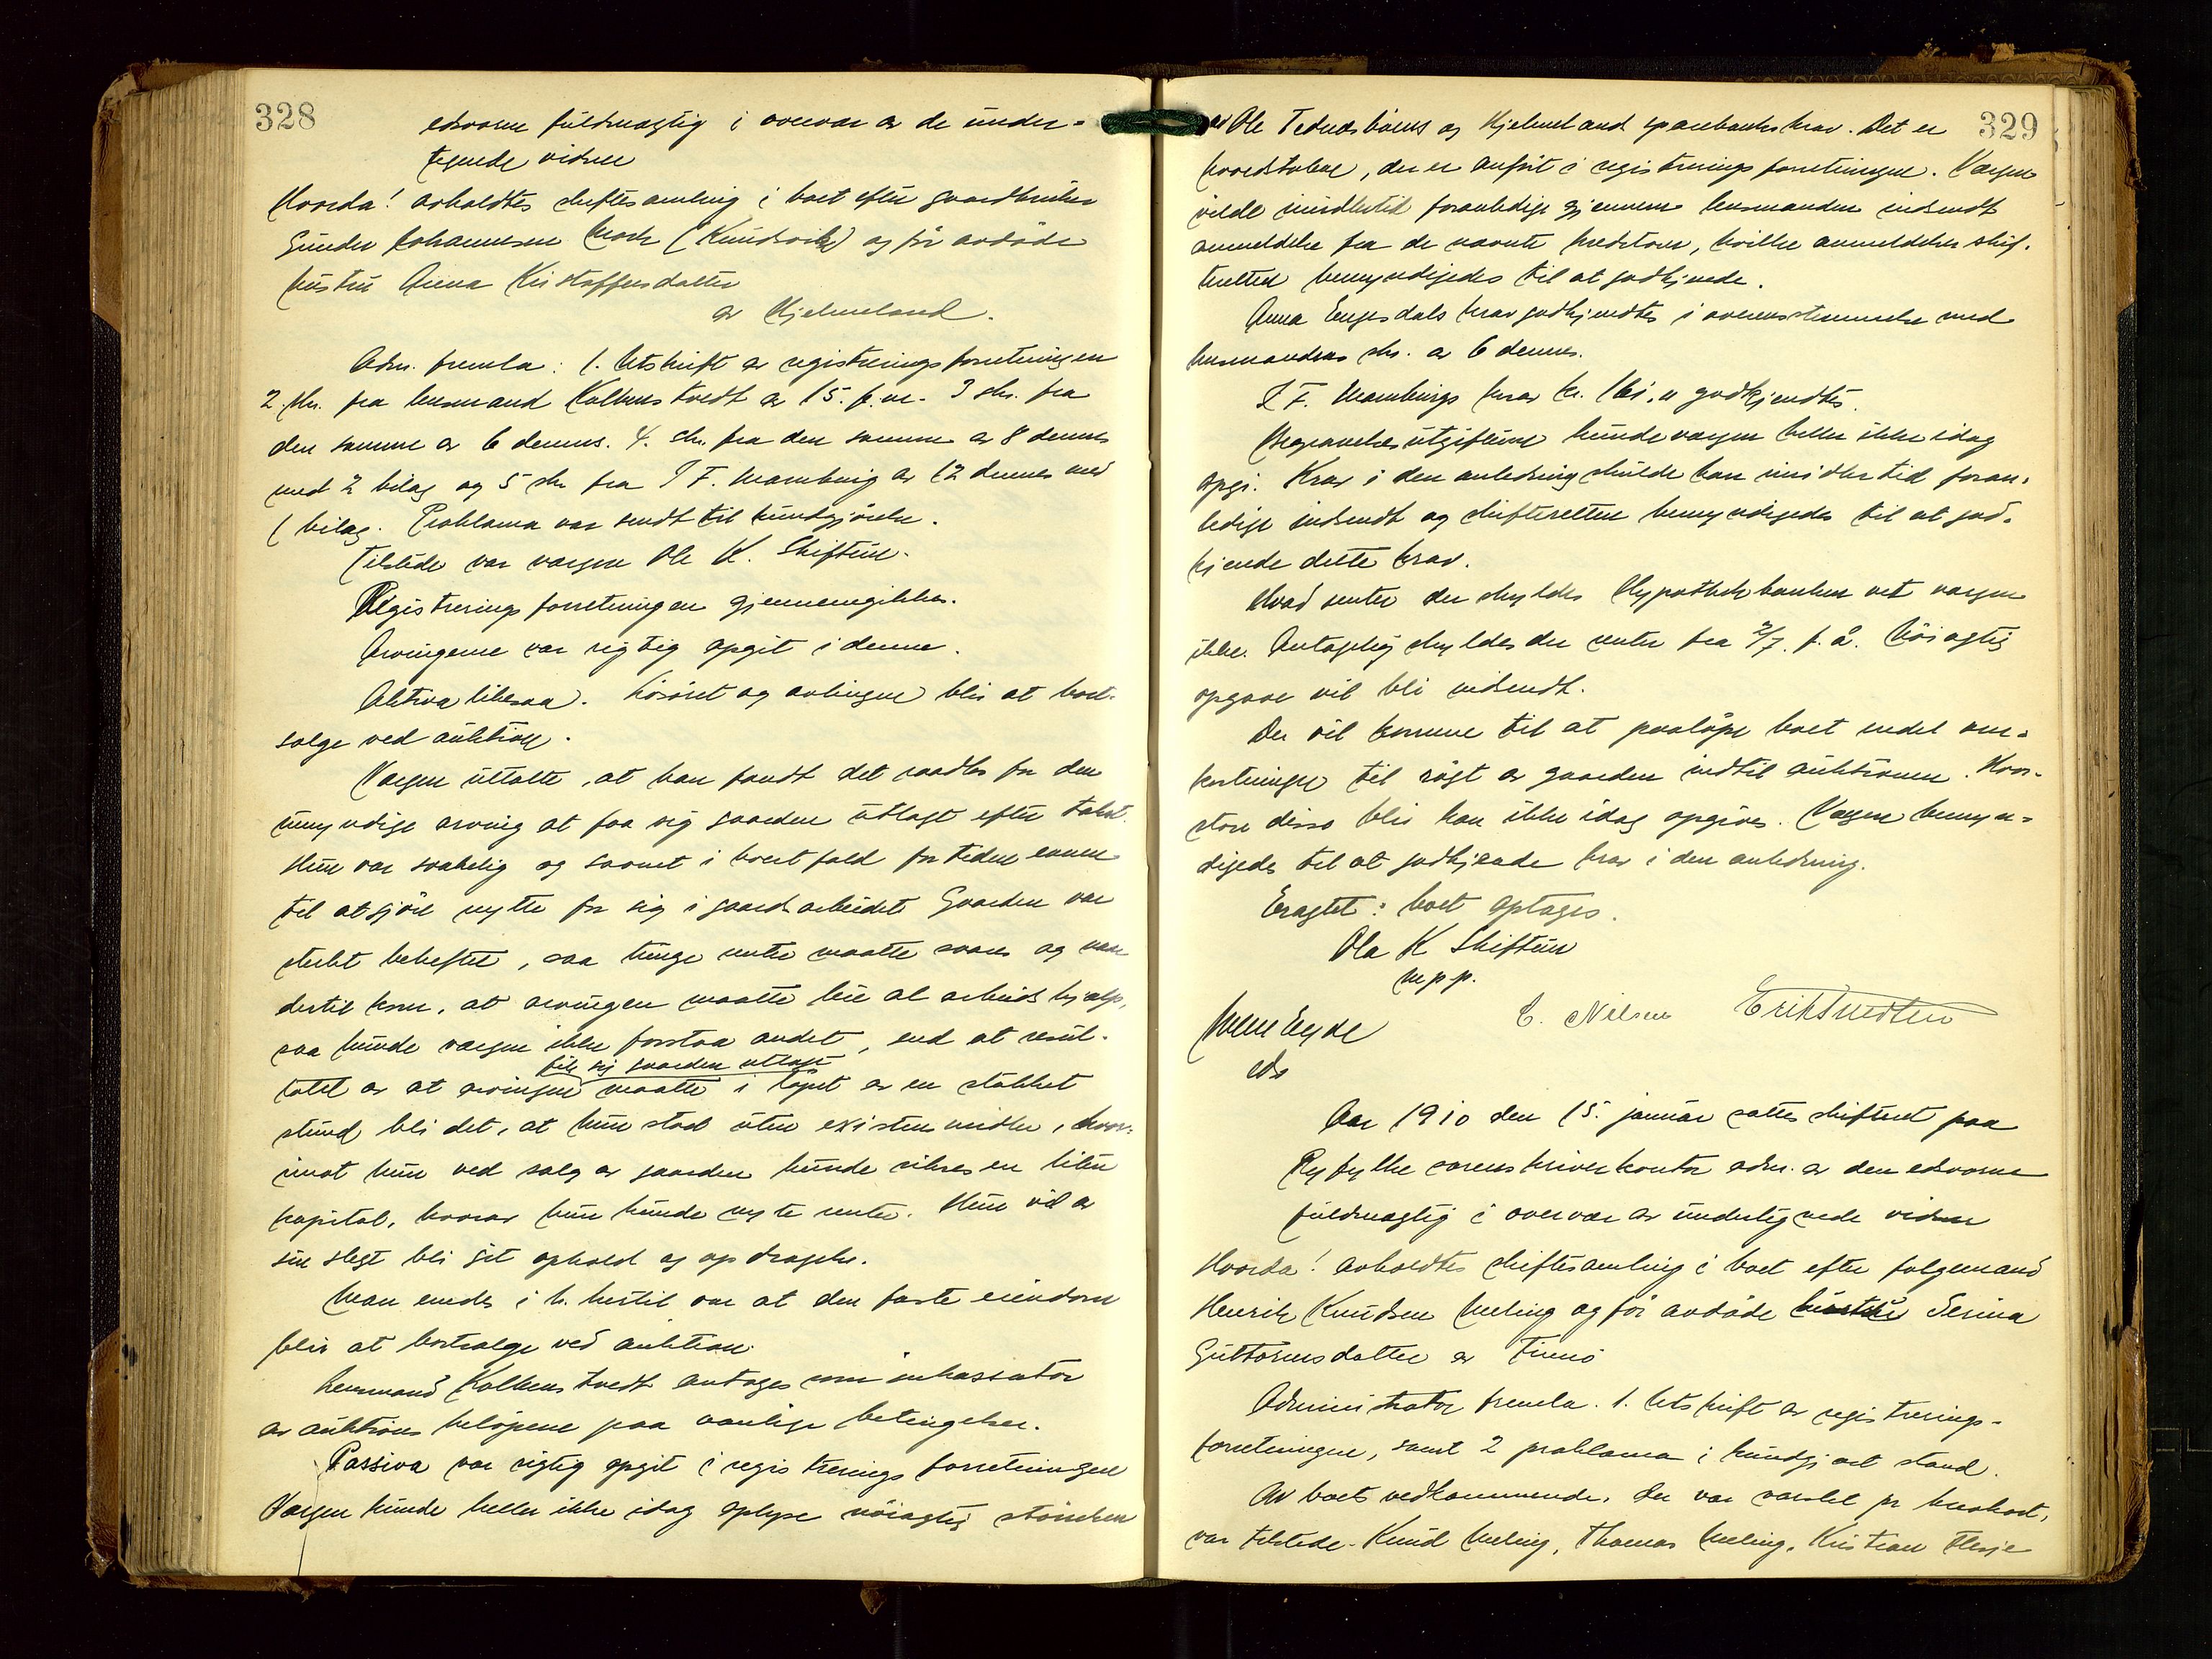 328
edsvorne fuldmægtig i overvær av de under-
tegnede vidner
Hvorda! avholdtes skiftesamling i boet efter gaardbruker
Gunder Johannesen (Kundsvik) og før avdøde
hustru Anna Kristoffersdatter
av Hjelmeland.
Adm. fremla: 1. Utskrift av registreringsforretningen
2. skr. fra lensmand Kolbenstvedt av 15. f.m. 3 skr. fra
den samme av 6 dennes. 4. skr. fra den samme av 8 dennes
med 2 bilag og 5 skr fra I F. Mamburg av 12 dennes med
1 bilag. Proklama var sendt til kundgjørelse.
Tilstede var værgen Ole K. Skiftun.
Registreringsforretningen gjennemgikkes.
Arvingerne var rigtig opgit i denne.
Aktiva likesaa. Løsøret og avlingen blir at bort-
sælge ved auktion.
Værgen uttalte, at han fandt det raadløs for den
umyndige arving at faa sig gaarden utlagt efter takst.
Hun var svakelig og savnet i hvert fald for tiden evnen
til at gjøre nytte for sig i gaardsarbeidet Gaarden var
sterkt beheftet, saa tunge renter maatte svares og naar
dertil kom, at arvingen maatte leie al arbeidshjælp,
saa kunde værgen ikke forstaa andet, end at resul-
fik sig gaarden utlagt
tatet av at arvingen maatte i løpet av en stakket
stund bli det, at hun stod uten existensmidler, hvor-
imot hun ved salg av gaarden kunde sikres en liten
kapital, hvorav hun kunde nyte renter. Hun vil av
sin slegt bli git ophold og opdragelse.
Man enedes i h. hertil om at den faste eiendom
blir at bortsælge ved auktion.
Lensmand Kolbenstvedt antages som inkassator
av auktionsbeløpene paa vanlige betingelser.
Passiva var rigtig opgit i registreringsforretningen
Værgen kunde heller ikke idag oplyse nøiagtig størrelsen
329
av Ole Tednæsbøens og Hjelmeland sparebanks krav. Det er
hovedstolene, der er anført i registreringsforretningen. Værgen
vilde imidlertid foranledige gjennem lensmanden indsendt
anmeldelse fra de nævnte kreditorer, hvilke anmeldelser skif-
teretten bemyndigedes til at godkjende.
Anna Engesdals krav godkjendtes i overensstemmelse med
lensmandens skr. av 6 dennes.
I F. Mamburgs krav kr. godkjendtes.
Begravelsesutgifterne kunde værgen heller ikke idag
opgi. Krav i den anledning skulde han imidlertid foran-
ledige indsendt og skifteretten bemyndigedes til at god-
kjende dette krav.
Hvad renter der skyldes Hypothekbanken vet værgen
ikke. Antagelig skyldes der renter fra 2/7 f. å. Nøiagtig
opgave vil bli indsendt.
Der vil komme til at paaløpe boet endel om-
kostninger til røgt av gaarden indtil auktionen. Hvor
store disse blir kan ikke idag opgives. Værgen bemyn-
digedes til at godkjende krav i den anledning.
Eragtet: boet optages.
Ola K Skiftun
m p p.
E. Nilsen Erik Knudsen
eds
Aar 1910 den 15. januar sattes skifteret paa
Ryfylke sorenskriverkontor adm. av den edsvorne
fuldmægtig i overvær av undertegnede vidner
Hvorda! avholdtes skiftesamling i boet efter følgemand
Henrik Knudsen Meling og før avdøde hustru Serina
Guttormsdatter av Finnø
Administrator fremla. 1. Utskrift av registrerings-
forretningen, samt 2 proklama i kundgjort stand.
Av boets vedkommende, der var varslet pr brevkort,
var tilstede. Knud Meling, Thomas Meling, Kristian Flesje